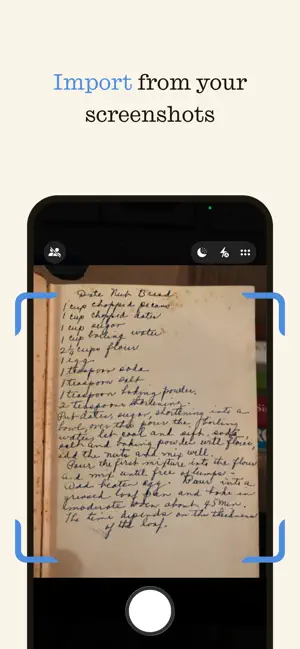 Import from your
screenshots
Date Nut Bread
1 cup chopped pecans
1 cup chopped dates
1 cup sugar
1 cup boiling water
2½ cups flour
1 egg
1 teaspoon soda
1 teaspoon salt
1 teaspoon baking powder
2 teaspoons shortening
Put dates, sugar, shortening into a
bowl, over this pour the boiling
water, let cool and sift soda,
salt and baking powder with flour
add the nuts and mix well.
Pour the first mixture into the flour
and mix until free of lumps.
Add beaten egg. Pour into a
greased loaf pan and bake in
moderate oven about 45 min.
The time depends on the thickness
of the loaf.